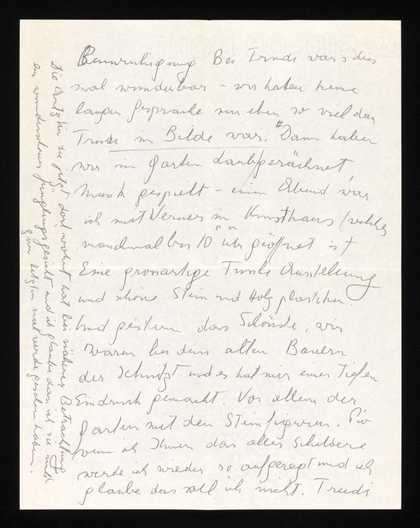 Beunruhigung Bei Trudi war's dies
mal wunderbar – wir haben keine
langen Gespräche nur eben so viel das
Trudi im Bilde war. Dann haben
wir im Garten Laub gerächnet
Musik gespielt – einen Abend war
ich mit Verner im Kunsthaus (welches
manchmal bis 10 Uhr geöffnet ist
Eine grossartige Ausstellung
und schöne Stein und Holz plastiken.
Und gestern das Schönste, wir
waren bei dem alten Bauern
der Schnitzt und es hat mir einen Tiefen
Eindruck gemacht. Vor allem der
Garten mit den Steinfiguren.
wenn ich Ihnen das alles Schildere
werde ich wieder so aufgeregt und ich
glaube das soll ich nicht. Trudi
Die Ärztin die jetzt dort wohnt hat bei näherer Betrachtung
ein wunderschönes und ich glaube dass ich sie mit
der Zeit gern haben.